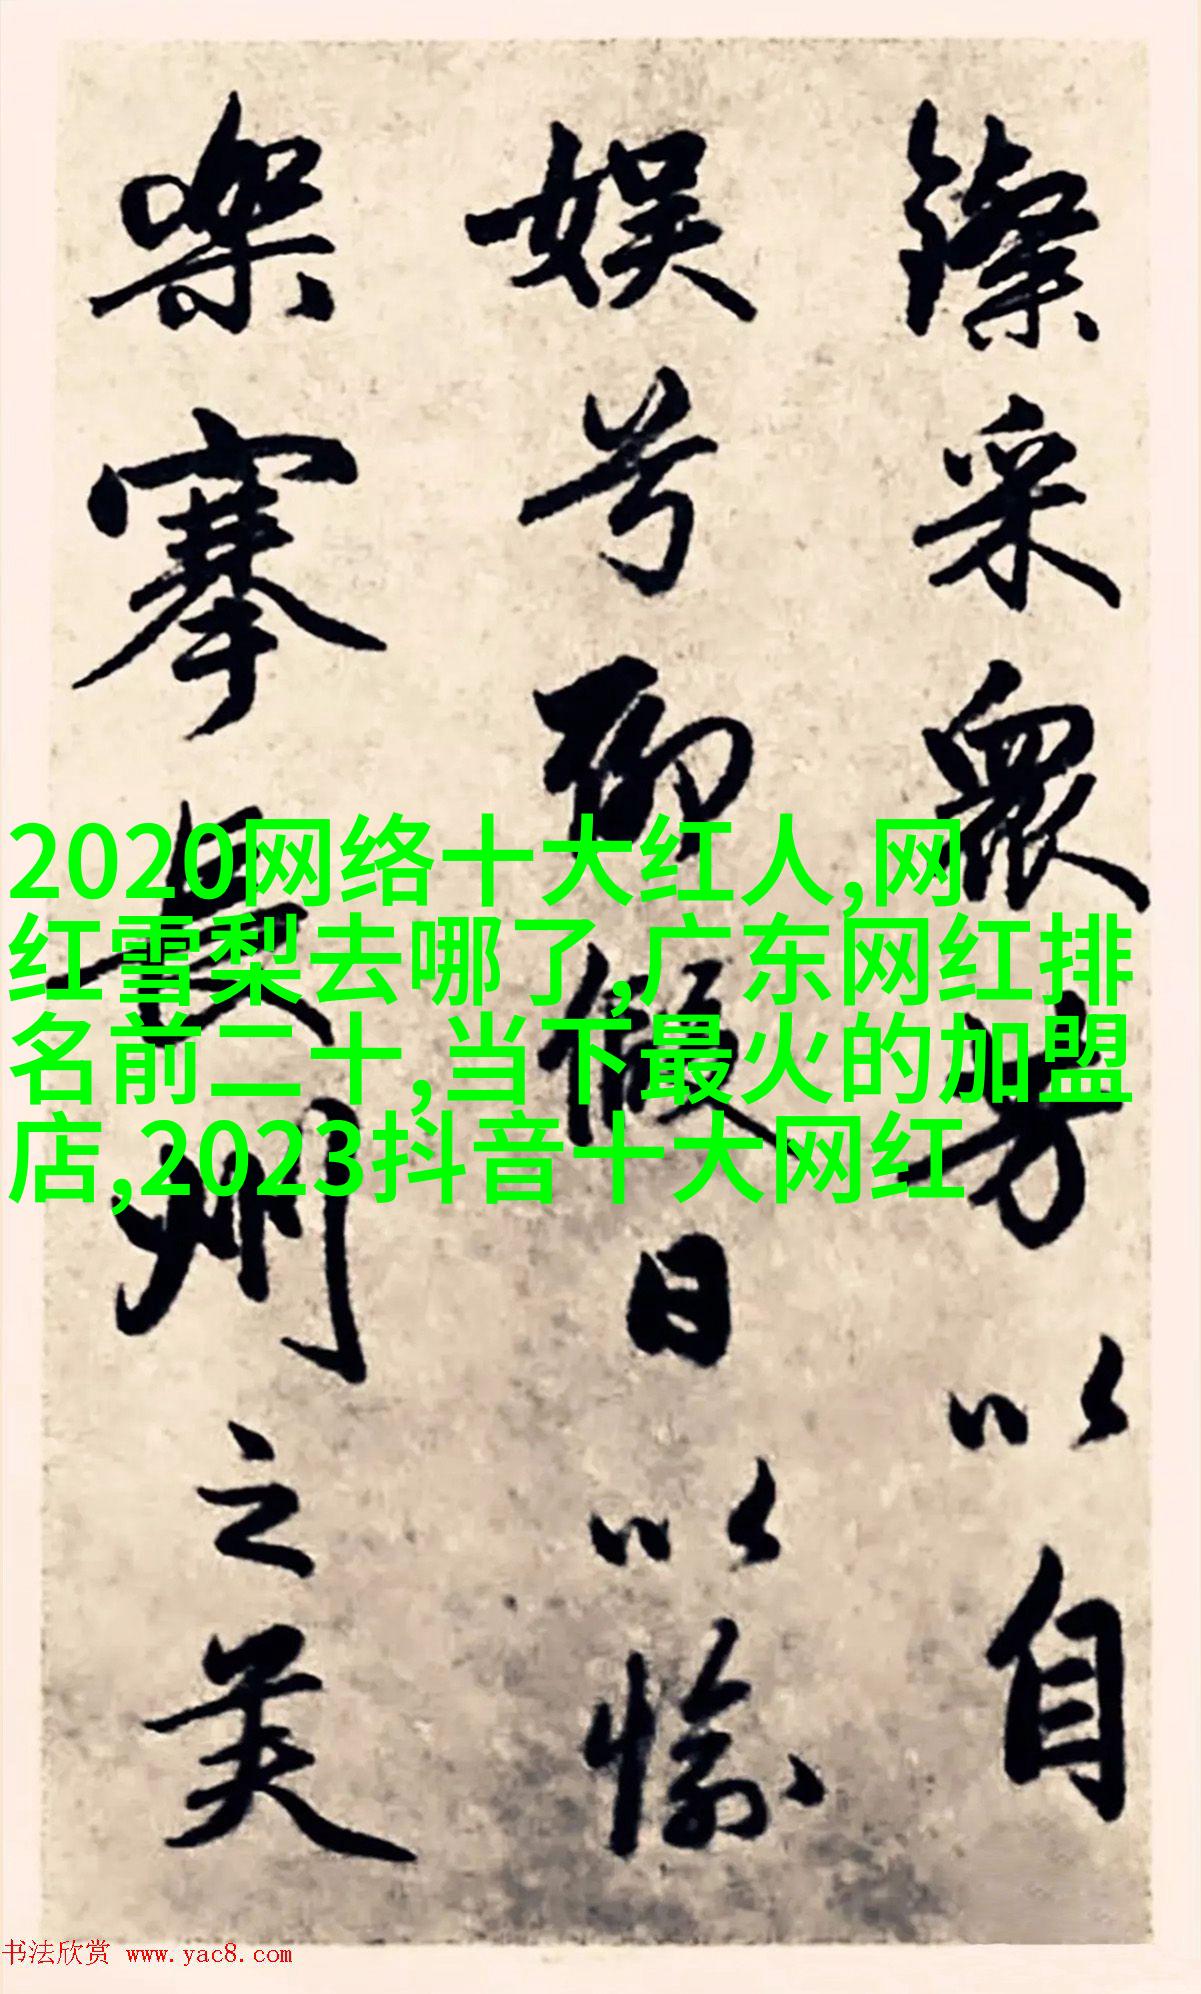 采眾芳以自
娛兮聊假日以愉
樂搴長洲之芙
2020网络十大红人,网
红雪梨去哪了,广东网红排
名前二十,当下最火的加盟
店,2023抖音十大网红
书法欣赏 www.yac8.com